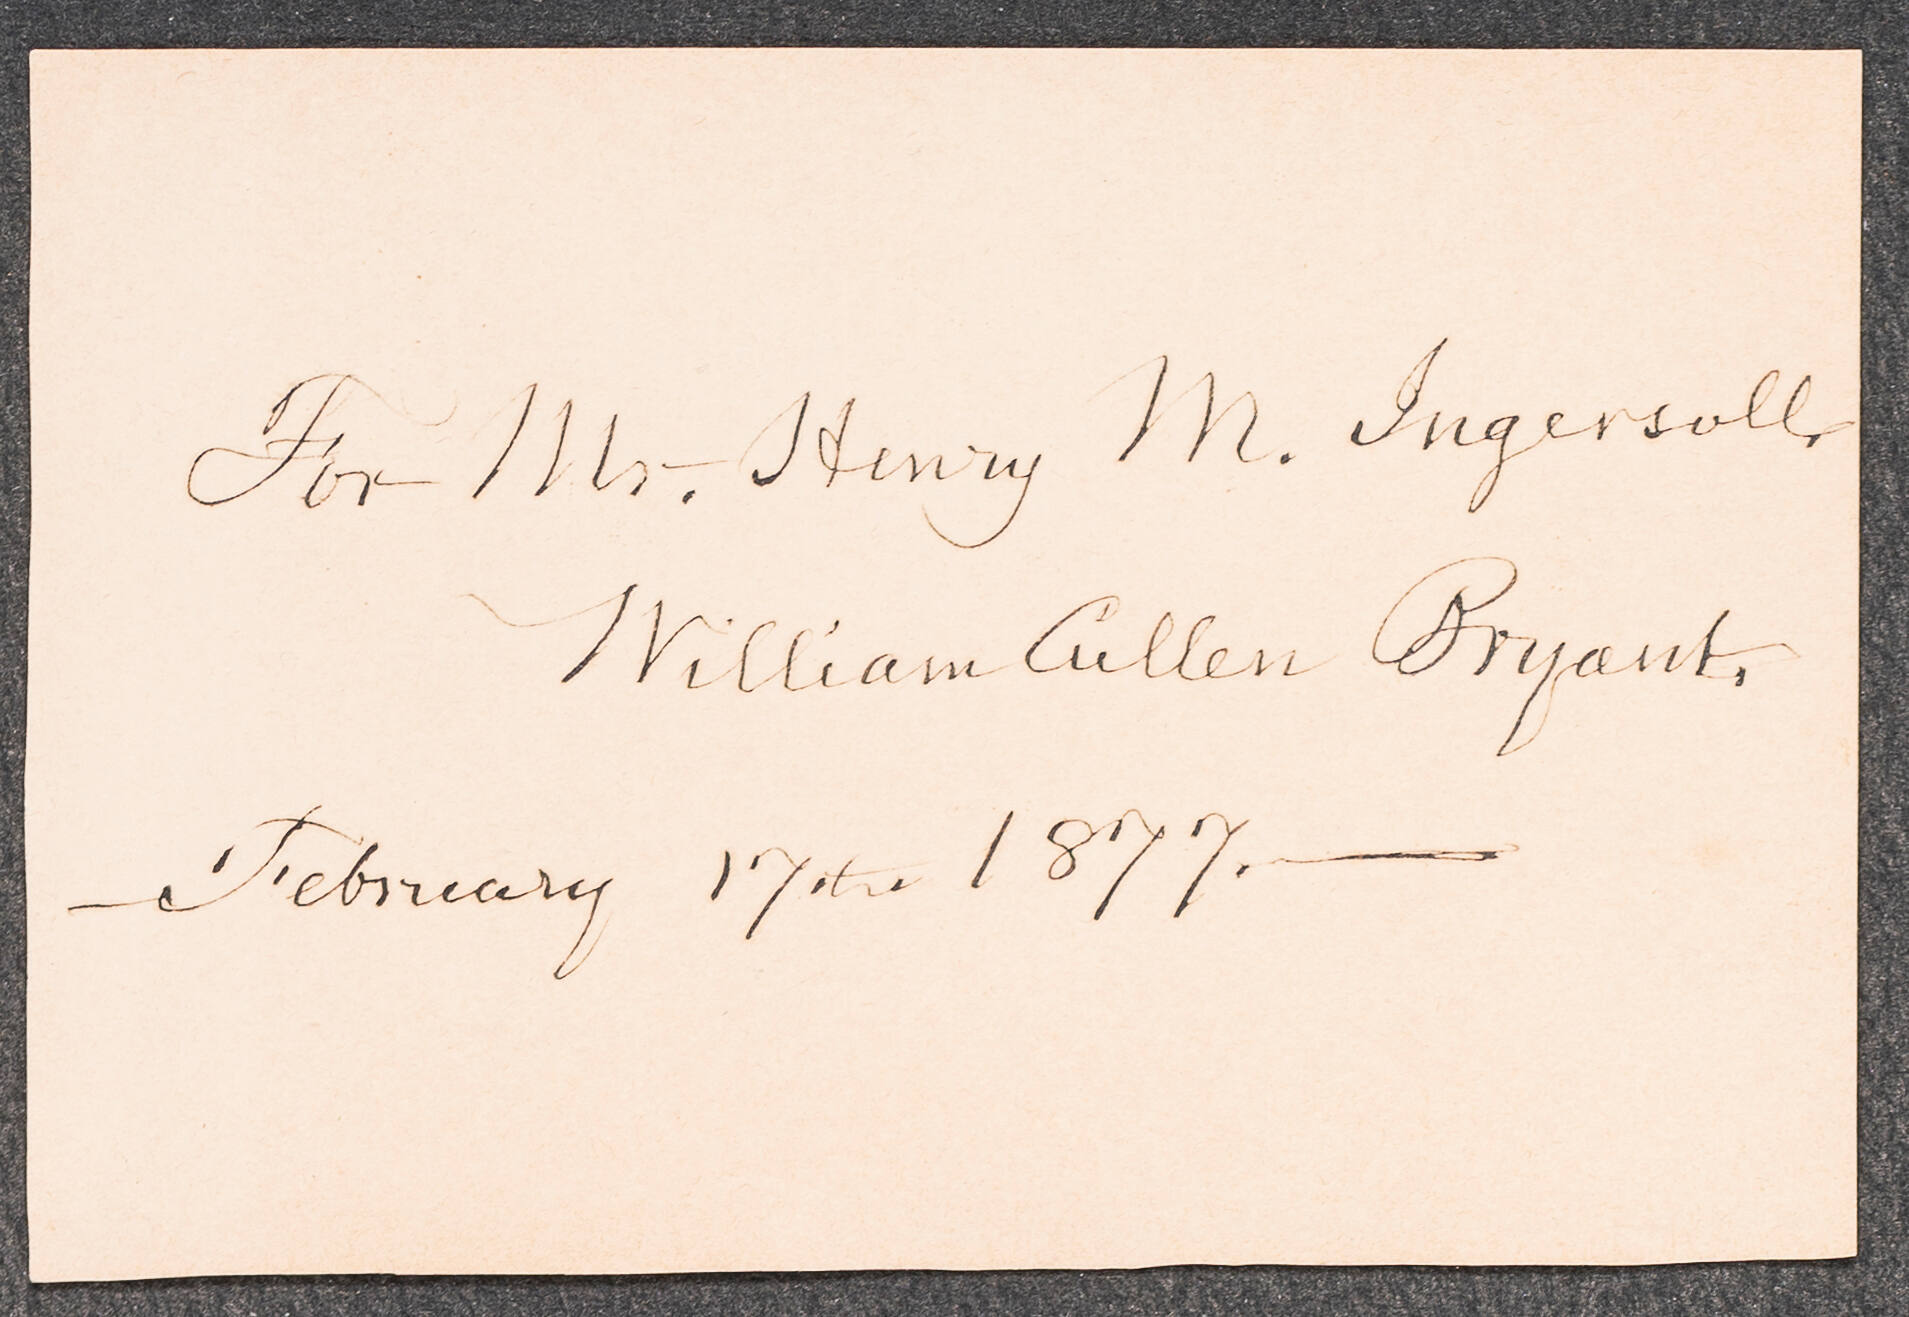 For Mr. Henry M. Ingersoll.
William Cullen Bryant.
February 17th 1877.